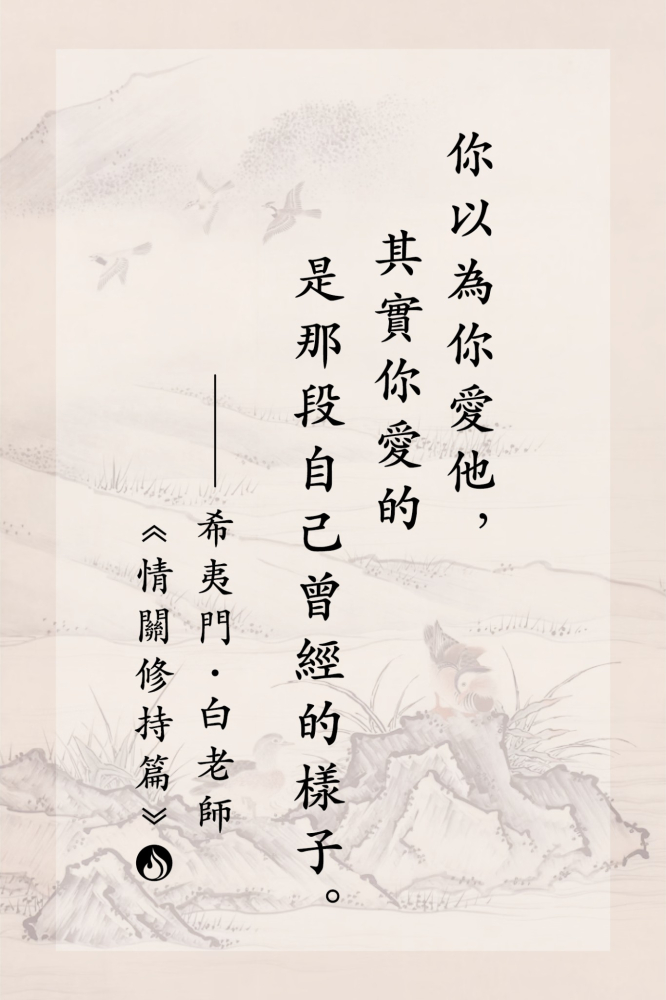 你以為你愛他，
其實你愛的
是那段自己曾經的樣子。
——希夷門·白老師
《情關修持篇》